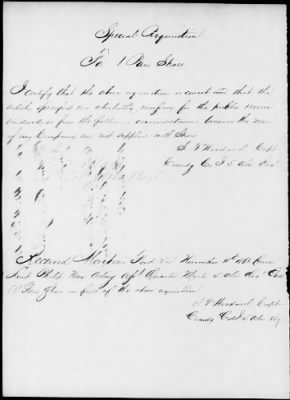 Special Requisition
For 1 Pair Shoes
I certify that the above requisition is correct and that the
articles specified are absolutely necessary for the public service
rendered so from the following circumstances because the men
of my Company are not supplied with Shoes
S F Woodward Capt
Comdg Co I 5 Ala Regt
Received Fred Va November 1861 from
Acting Asst Quarter Master 5 Ala Regt One
Pair Shoes in full of the above requisition
S F Woodward Capt
Comdg Co I 5 Ala Rg